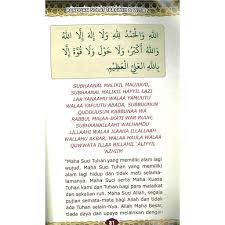 وَاللَّهِ وَالْحَمْدُ لِلَّهِ وَلَا إِلٰهَ إِلَّا اللَّهُ
وَاللَّهُ أَكْبَرُ، وَلَا حَوْلَ وَلَا قُوَّةَ إِلَّا
بِاللَّهِ الْعَلِيِّ الْعَظِيْمِ.
SUBHAANAL MALIKIL MAUJUUD,
SUBHAANAL MALIKIL HAYYIL LAZI
LAA YANAAMU WALAA YAMUUTU
WALAA YAFUUTU ABADA, SUBBUUHUN
QUDDUUSUN RABBUNAA WA
RABBUL MALAA-IKATI WAR RUUH,
SUBHAANALLAAHI WALHAMDU
LILLAAHI WALAA ILAAHA ILLALLAAH
WALLAHU AKBAR, WALAA HAULA WALAA
QUWWATA ILLAA BILLAHIL 'ALIYYIL
'AZHIIM
"Maha Suci Tuhan yang memiliki alam lagi
wujud. Maha Suci Tuhan yang memiliki
alam lagi hidup dan tidak mati selama-
lamanya. Maha Suci serta Maha Kuasa
Tuhan kami dan Tuhan bagi para malaikat
dan sekalian ruh. Maha Suci Allah, segala
pujian semata-mata bagi Allah dan tidak
ada Tuhan selain-Nya. Allah Maha Besar,
tiada daya dan upaya melainkan dengan
81